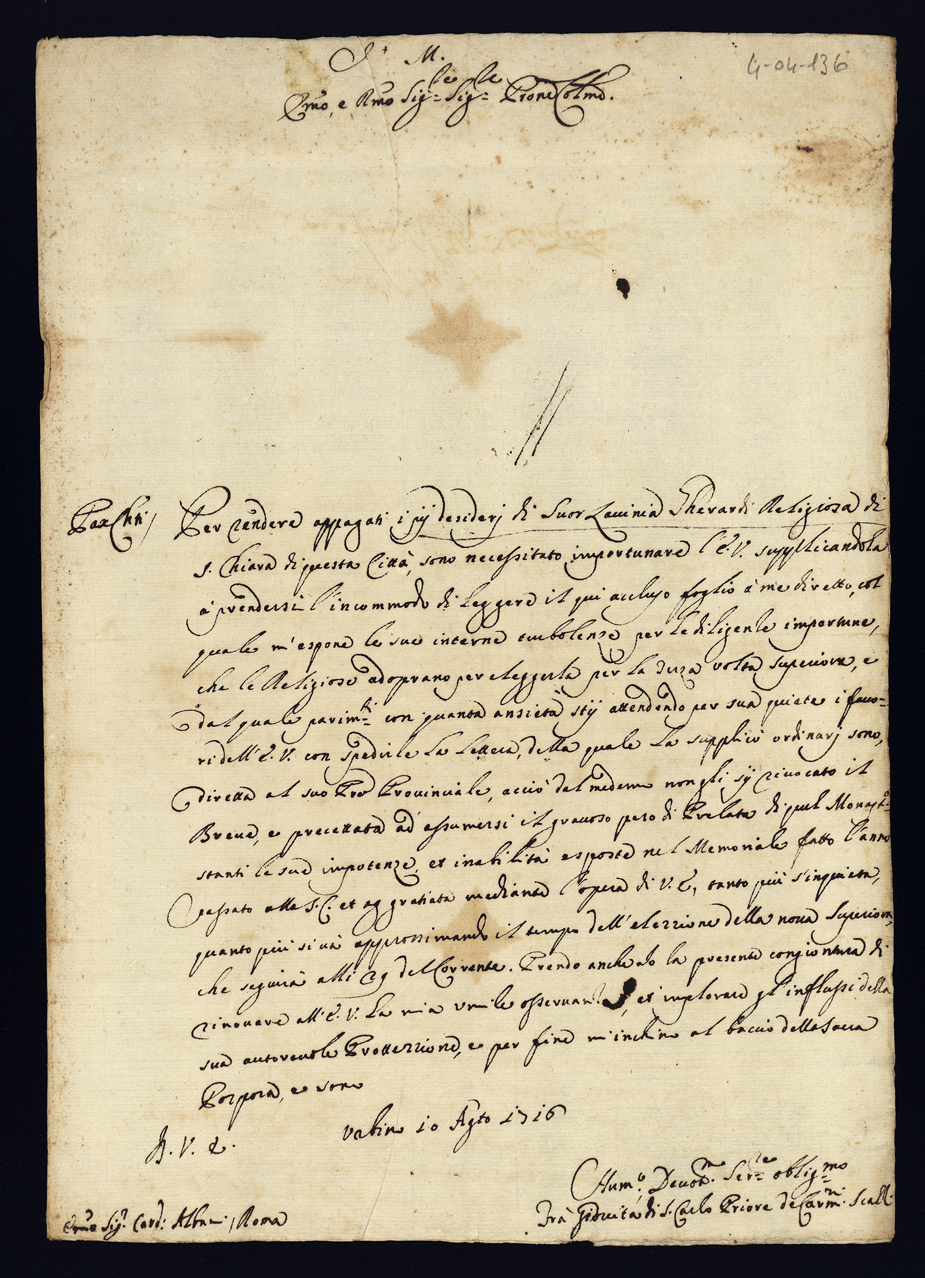 J. M.
4-04-136
Emo, e Rmo Sig:le Sig:le Prone Colmo.
Pax Chri /
Per rendere appagati i pij desiderj di Suor Lavinia Gherardi Religiosa di
S. Chiara di questa Città, sono necessitato importunare l'E.V. supplicandola
à prendersi l'incommodo di leggere il qui accluso foglio à me diretto, col
quale m'espone le sue interne turbolenze per le diligenze importune,
che le Religiose adoprano per eleggerla per la terza volta superiora, e
dal quale parim:ti con quanta ansietà stij attendendo per sua quiete i favo-
ri dell'E.V. con spedirle la lettera, della quale la supplicò ordinarj sono,
diretta al suo Pre Provinciale, acciò dal medemo non gli sij rivocato il
Breve, e precettata ad assumersi il gravoso peso di Prelata di quel Monast:o
stanti le sue impotenze, et inabilità esposte nel Memoriale fatto l'anno
passato alla S.C. et aggratiata mediante l'opera di V.E, tanto più s'inquieta,
quanto più si và approssimando il tempo dell'elezzione della nova Superiora,
che seguirà alli 29 del Corrente. Prendo anche io la presente congiontura di
rinovare all'E.V. la mia umile osservanza, et implorare gl'influssi della
sua autorevole Protezzione, e per fine m'inchino al baccio della Sacra
Porpora, e sono
D. V. E.
Urbino 10 Agto 1716
Hum:o Devot:mo Ser:re oblig:mo
Frà Giovita di S. Carlo Priore de Carm:ni Scalzi
Emo Sig:r Card: Albani / Roma